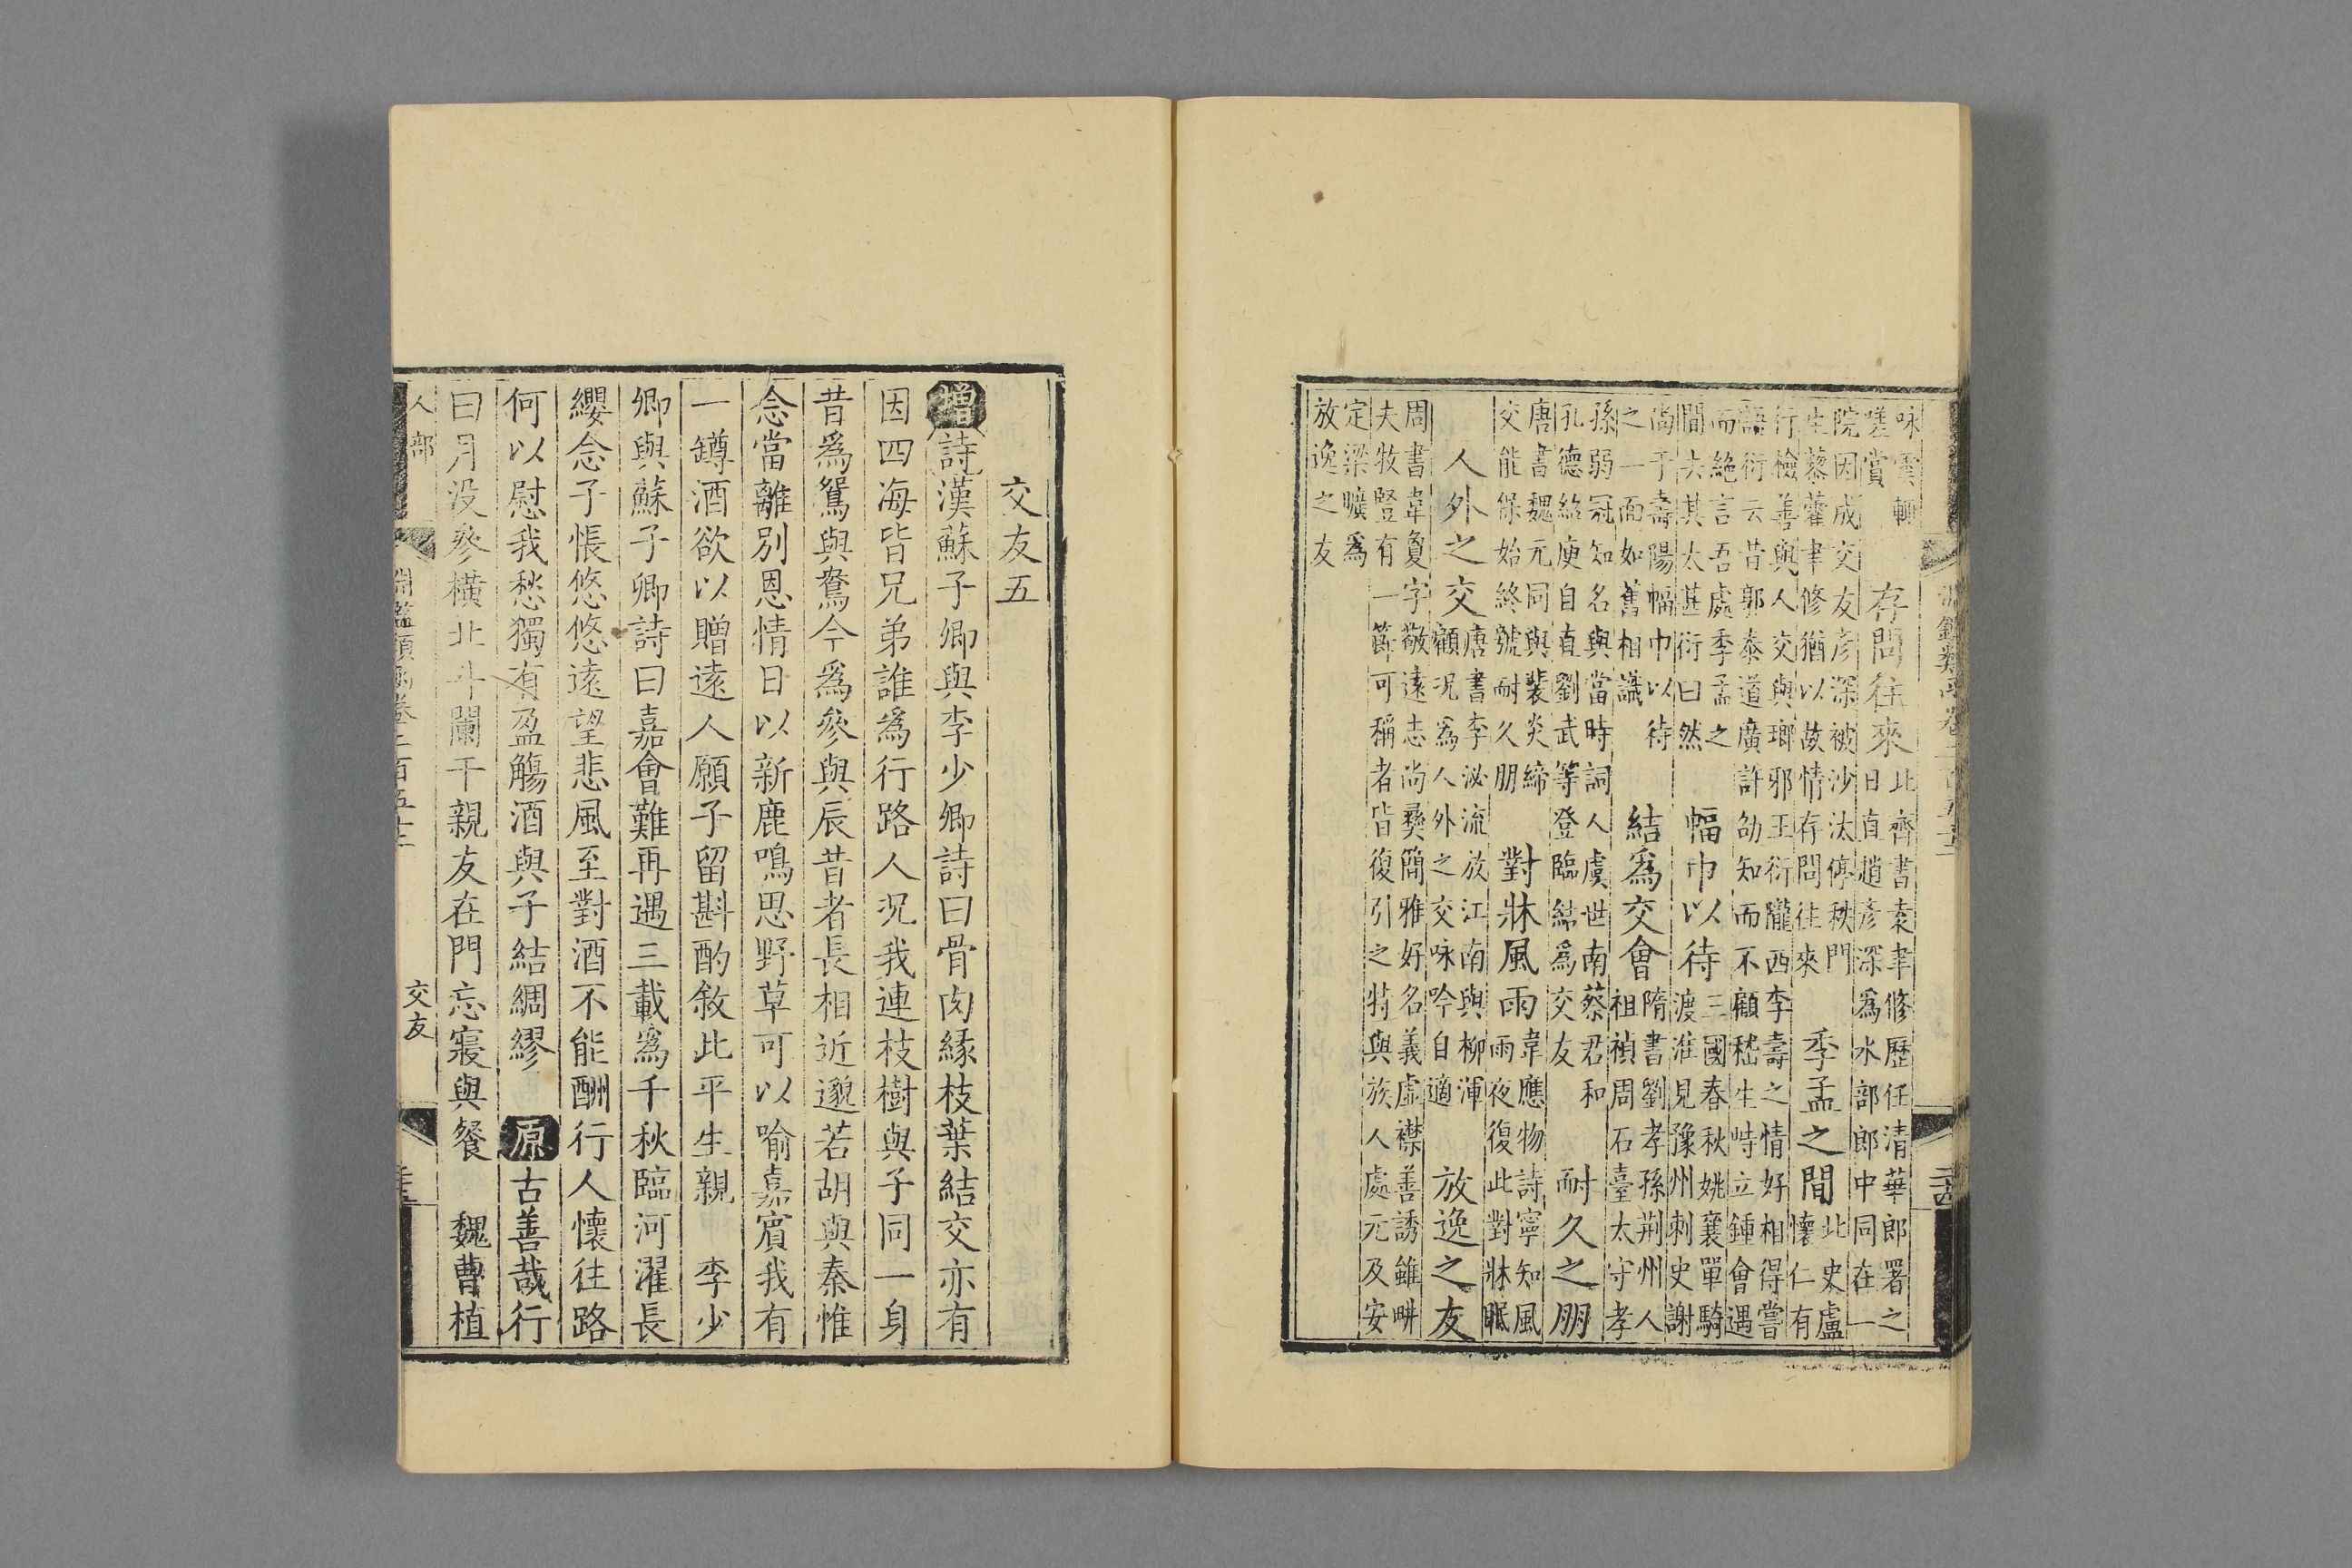 咏雲輒
嗟賞
存問往來
北齊書袁聿修歷任清華郎署之
日直趙彥深爲水部郎中同在一
院因成交友彥深被沙汰停秩門
生藜藿聿修猶以故情存問往來
季孟之間
北史盧
懷仁有
行檢善與人交與瑯邪王衍隴西李壽之情好相得嘗
語衍云昔郭泰道廣許劭知而不顧嵇生峙立鍾會遇
而絕言吾處季孟之
間去其太甚衍曰然
幅巾以待
三國春秋姚襄單騎
渡淮見豫州刺史謝
尚于壽陽幅巾以待
之一面如舊相識
結爲交會
隋書劉孝孫荆州人
祖禎周石臺太守孝
孫弱冠知名與當時詞人虞世南蔡君和
孔德紹庾自直劉武等登臨結爲交友
耐久之朋
唐書魏元同與裴炎締
交能保始終號耐久朋
對牀風雨
韋應物詩寧知風
雨夜復此對牀眠
人外之交
唐書李泌流放江南與柳渾
顧況爲人外之交咏吟自適
放逸之友
周書韋夐字敬遠志尚彝簡雅好名義虛襟善誘雖畊
夫牧豎有一節可稱者皆復引之特與族人處元及安
定梁曠爲
放逸之友
交友五
增詩漢蘇子卿與李少卿詩曰骨肉緣枝葉結交亦有
因四海皆兄弟誰爲行路人況我連枝樹與子同一身
昔爲鴛與鴦今爲參與辰昔者長相近邈若胡與秦惟
念當離別恩情日以新鹿鳴思野草可以喻嘉賓我有
一罇酒欲以贈遠人願子留斟酌敘此平生親 李少
卿與蘇子卿詩曰嘉會難再遇三載爲千秋臨河濯長
纓念子悵悠悠遠望悲風至對酒不能酬行人懷往路
何以慰我愁獨有盈觴酒與子結綢繆 原古善哉行
曰月没參橫北斗闌干親友在門忘寢與餐 魏曹植
人部
淵鑑類函卷二百五十三
交友